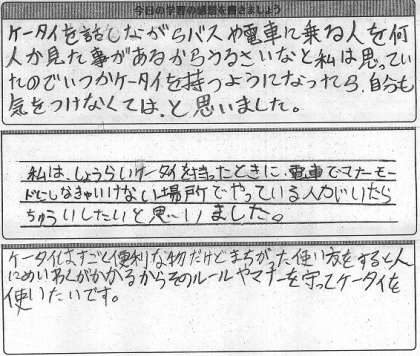 今日の学習の感想を書きましょう
ケータイを話しながらバスや電車に乗る人を何
人か見た事があるからうるさいなと私は思ってい
たのでいつかケータイを持つようになったら、自分も
気をつけなくては、と思いました。
私は、しょうらいケータイを持ったときに、電車でマナーモー
ドにしなきゃいけない場所でやっている人がいたら
ちゅういしたいと思いました。
ケータイはすごく便利な物だけどまちがった使い方をすると人
にめいわくがかかるからそのルールやマナーを守ってケータイを
使いたいです。